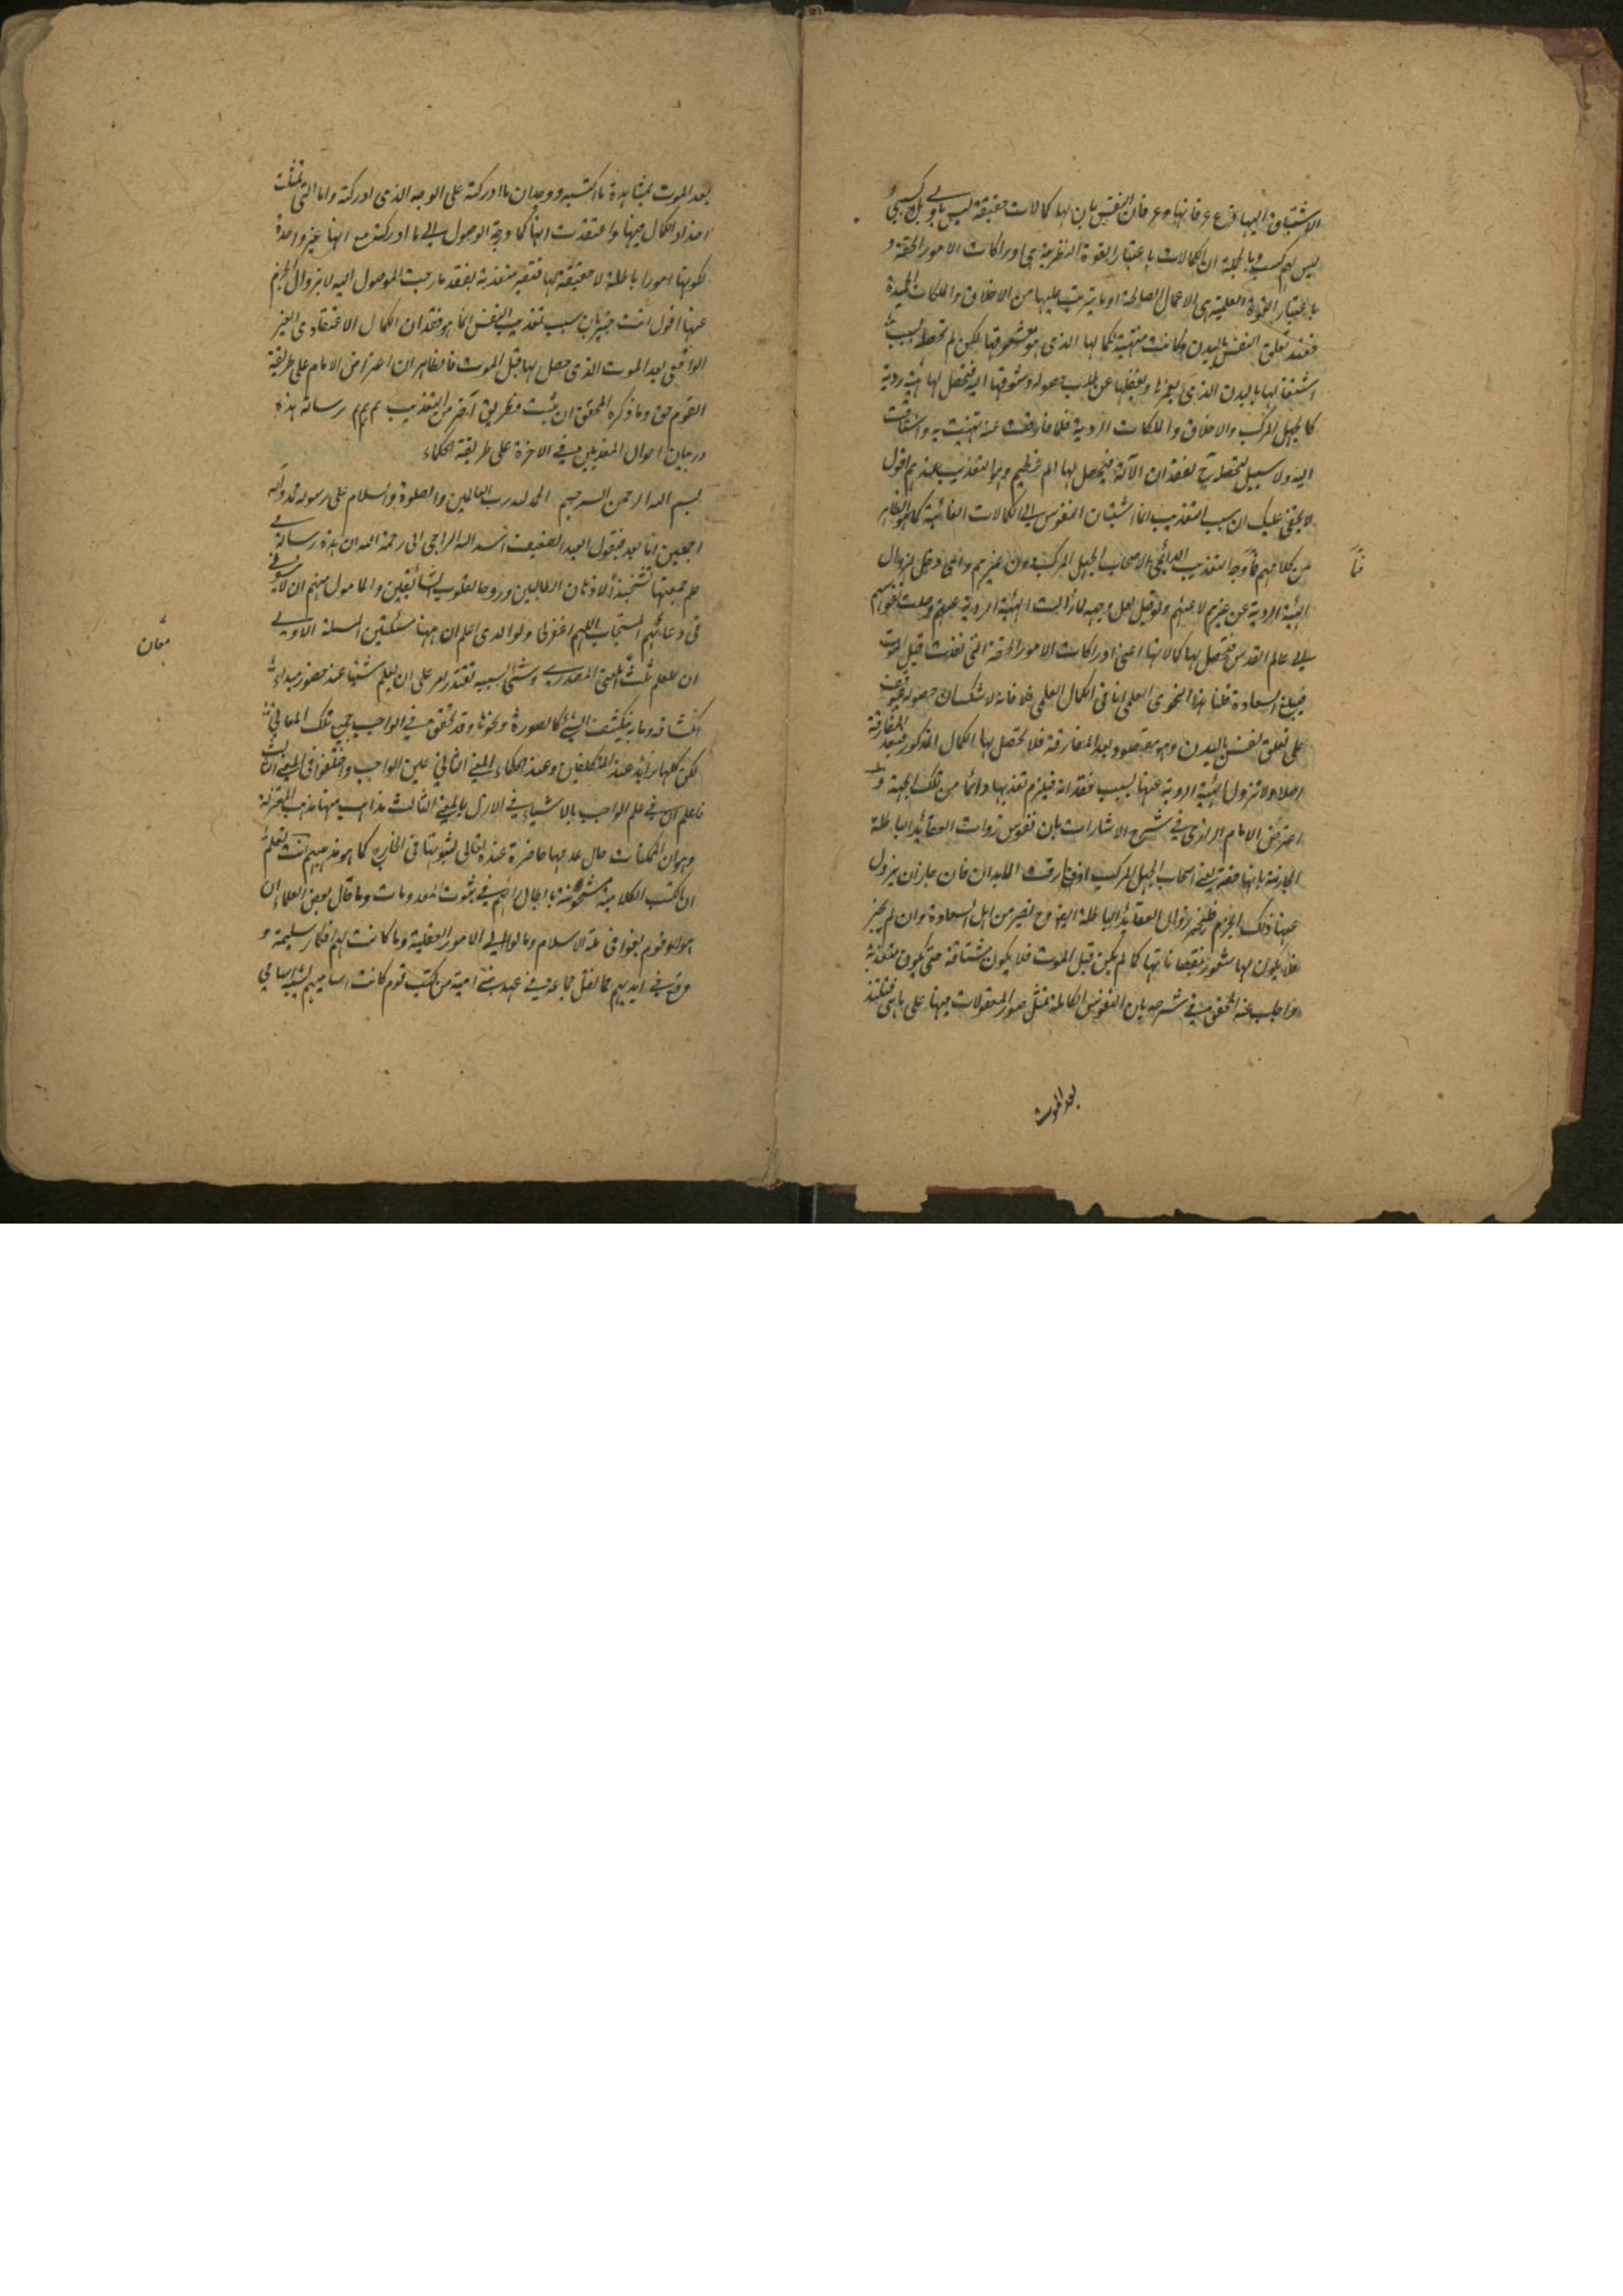 الاشتياق اليها فرع عرفانها وعرفان النفس بان لها كمالات حقيقة ليس باولى بل كسبى و
ليس لهم كسب وبالجملة ان الكمالات باعتبار القوة النظرية هى ادراكات الامور الحقة و
باعتبار القوة العلمية هى الاعمال الصالحة او ما يترتب عليها من الاخلاق والملكات الحميدة
فعند تعلق النفس بالبدن وكانت منتهية لكمالها الذى هو معشوقها لكن لم تحصله بسبب
اشتغالها بالبدن الذى يغرها ويغفلها عن طلب حصوله وشوقها اليه فتحصل لها هيئة ردية
كالجهل المركب والاخلاق والملكات الردية فلما فارقت عنه تنبهت به واشتاقت
اليه ولا سبيل لتحصله ح لفقدان الآلة فيحصل لها الم عظيم وهو التعذيب عندهم اقول
لا يخفى عليك ان سبب التعذيب انما اشتياق النفوس الى الكمالات الفائتة كما هو الظاهر
من كلامهم فما وجه التعذيب الدائمى لاصحاب الجهل المركب دون غيرهم واى دخل لزوال
الهيئة الردية عن غيرهم لا عنهم ولو قيل لعل وجهه لما زالت الهيئة الردية عنهم وصلت نفوسهم
الى عالم القدس فتحصل بها كمالاتها اعنى ادراكات الامور الحقة التى فقدت قبل الموت
فيبلغ السعادة قلنا هذا انما يجرى فى الكمال العلمى فلا فانه لا شك ان حصوله موقوف
على تعلق النفس بالبدن وهو مفقود بعد المفارقة فلا تحصل بها الكمال المذكور بعد المفارقة
اصلا ولا تزول الهيئة الردية عنها بسبب فقدانه فيلزم تعذيبها دائما من تلك الجهة و
اعترض الامام الرازى فى شرح الاشارات بان نفوس ذوات العقائد الباطلة
الجازمة بانها حقة يعنى اصحاب الجهل المركب اذا فارقت الابدان فان جاز ان يزول
عنها ذلك الجزم فليجز زوال العقائد الباطلة ايضا وح تصير من اهل السعادة وان لم يجز
فلا يكون لها شعور بنقصاناتها كما لم يكن قبل الموت فلا يكون مشتاقة حتى يكون متعذبة
واجاب عنه المحقق فى شرحه بان النفوس الكاملة تمثل صور المعقولات فيها على ما هى فتلتذ
بعد الموت
بعد الموت بمشاهدة ما اكتسبه ووجدان ما ادركته على الوجه الذى ادركته واما التى تمثلت
اضداد الكمال فيها واعتقدت انها كمال ورجت الوصول الى ما ادركته مع انها غير واجدة
لكونها امورا باطلة لا حقيقة لها فتصير متعذبة بفقد ما رجت الوصول اليه لا بزوال الجزم
عنها اقول انت خبير بان سبب تعذيب النفس انما هو فقدان الكمال الاعتقادى الغير
الواقعى بعد الموت الذى حصل لها قبل الموت فالظاهر ان اعتراض الامام على طريقة
القوم حق وما ذكره المحقق ان يثبت فطريق آخر من التعذيب م م م رساله هذه
در بيان احوال المعذبين فى الآخرة على طريقة الحكماء
بسم الله الرحمن الرحيم الحمد لله رب العالمين والصلوة والسلام على رسوله محمد وآله
اجمعين اما بعد فيقول العبد الضعيف اسد الله الراجى الى رحمة الله ان هذه رسالة فى
علم جمعتها تشحيذا لاذهان الطالبين وروحا لقلوب الشائقين والمامول منهم ان لا ينسونى
فى دعائهم المستجاب اللهم اغفر لى ولوالدى اعلم ان ههنا مسئلتين المسئلة الاولى
ان للعلم ثلث المعنى المصدرى وشئ بسببه تقتدر على ان يعلم شيئا عند حضور مبداء
انكشافه وما به ينكشف الشئ كالصورة ونحوها وقد تحقق فى الواجب جميع تلك المعانى
لكن كلها زائد عند المتكلمين وعند الحكماء المعنى الثانى عين الواجب واختلفوا فى المعنى الثالث
فاعلم ان فى علم الواجب بالاشياء فى الازل بالمعنى الثالث مذاهب منها مذهب المعتزلة
وهو ان الممكنات حال عدمها حاضرة عنده تعالى لثبوتها فى الخارج كما هو مذهبهم
ان الكتب الكلامية مشحونة بابطال رايهم فى ثبوت المعدومات وما قال بعض العلماء ان
هؤلاء قوم بغوا فى ملة الاسلام ومالوا الى الامور العقلية وما كانت لهم افكار سليمة و
وقع فى ايديهم مما نقل جماعة فى عهد بنى امية من كتب قوم كانت اساميهم تشبه اسامى
معان